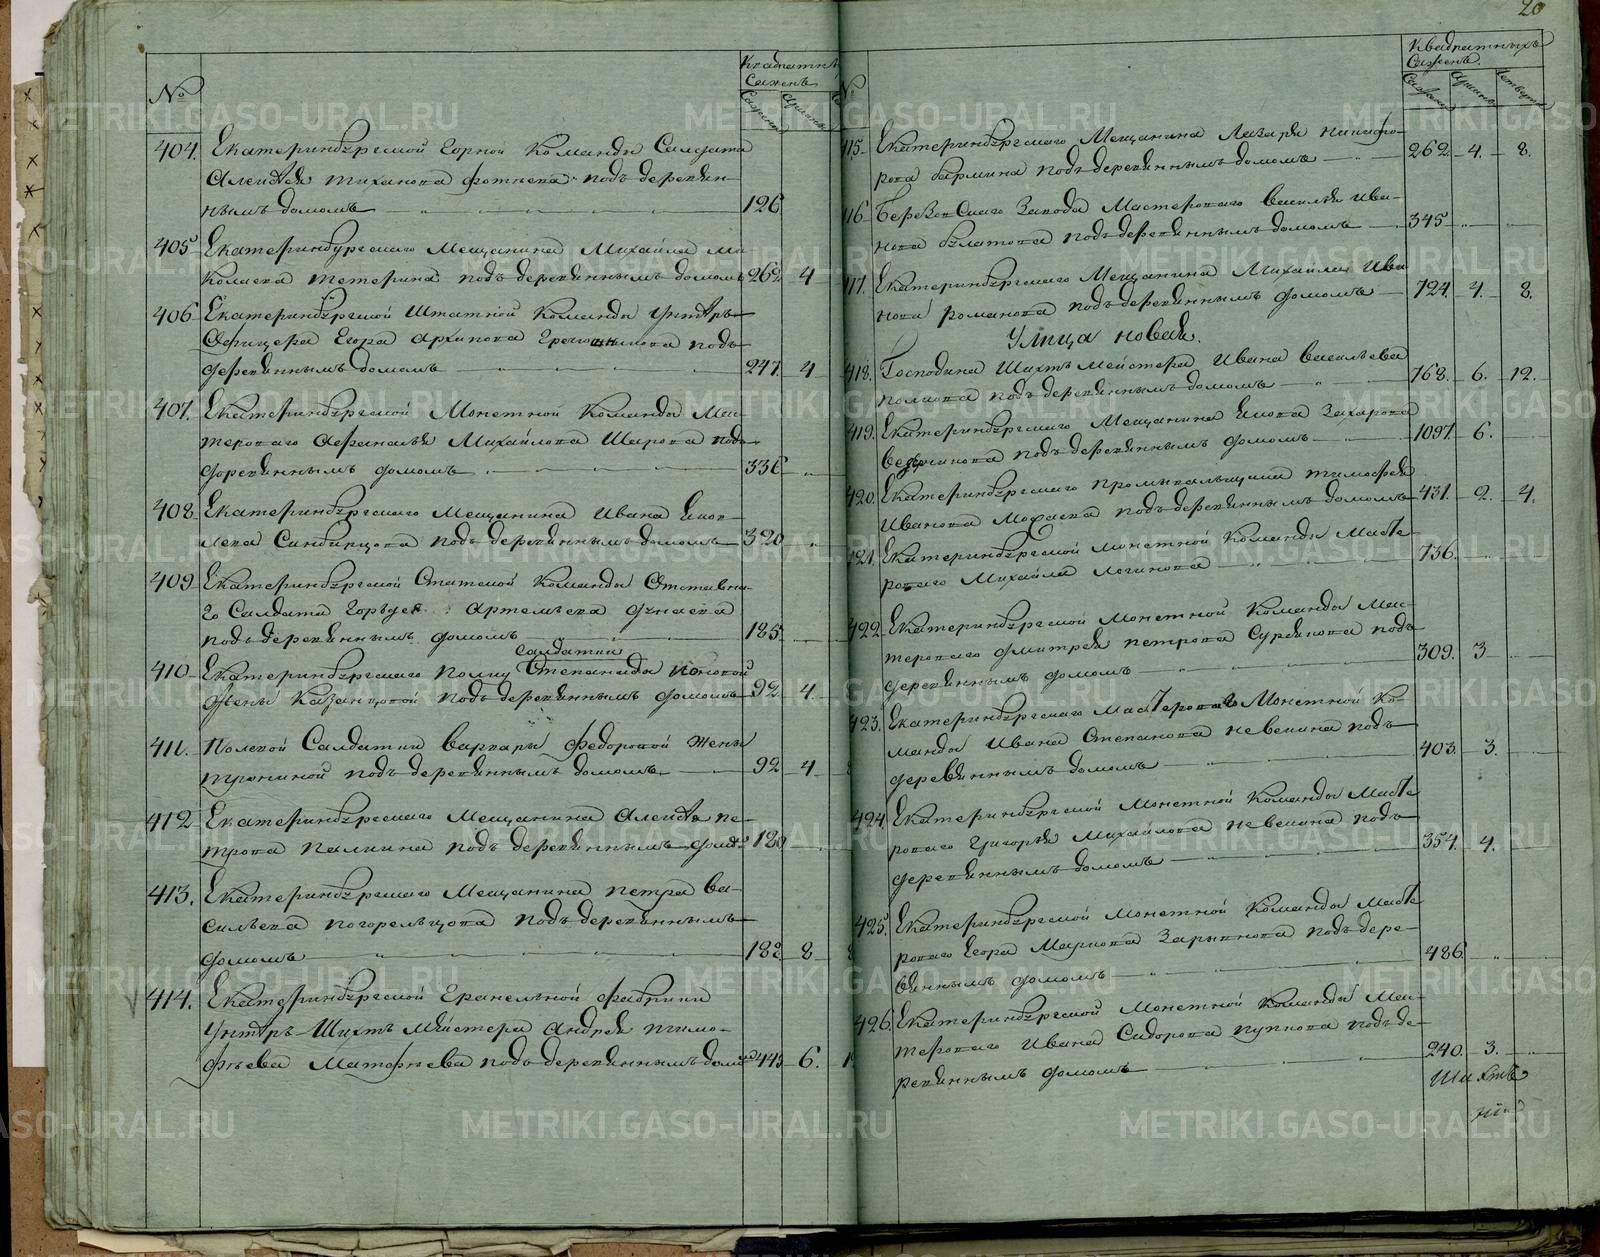 №
Квадратныхъ
Саженъ
Сажени
Аршинъ
404. Екатеринбургской Горной Команды Салдата
Алексѣя Тиханова подъ деревян-
нымъ домомъ 126
405 Екатеринбургскаго Мещанина Михайла Ни
колаева Тетерина подъ деревяннымъ домомъ 262 4
406 Екатеринбургской Штатной Команды Унтеръ
Офицера Егора Архипова подъ
деревяннымъ домомъ 247. 4
407. Екатеринбургской Монетной Команды Мас-
тероваго Афанасья Михайлова Шарова подъ
деревяннымъ домомъ 336
408 Екатеринбургскаго Мещанина Ивана Яков-
лева подъ деревяннымъ домомъ 320
409 Екатеринбургской Статской Команды Отставна-
го Салдата Артемьева Дунаева
подъ деревяннымъ домомъ 185
салдатки
410 Екатеринбургскаго Полку Степаниды
жены Казанцовой подъ деревяннымъ домомъ 92 4
411. Полевой Салдатки Варвары Федоровой жены
подъ деревяннымъ домомъ 92 4
412 Екатеринбургскаго Мещанина Алексѣя Пе-
трова Палкина подъ деревяннымъ домомъ 120
413. Екатеринбургскаго Мещанина Петра Ва-
сильева Погорельцова подъ деревяннымъ
домомъ 188 8
414. Екатеринбургской Гранильной фабрики
Унтеръ Шихтъ Мейстера Андрея Тимо-
фѣева Матфѣева подъ деревяннымъ домомъ 443 6.
20
№
Квадратныхъ
Саженъ.
Сажени
Аршинъ
Четверти
415. Екатеринбургскаго Мещанина Лазаря Никифо-
рова подъ деревяннымъ домомъ 262. 4. 8.
416 Березовскаго Завода Мастероваго Василья Ива-
нова Булатова подъ деревяннымъ домомъ 345
417. Екатеринбургскаго Мещанина Михайла Ива
нова Романова подъ деревяннымъ домомъ 724. 4. 8.
Улица новая.
418. Господина Шихтъ мейстера Ивана Васильева
Попкова подъ деревяннымъ домомъ 768. 6. 12.
419. Екатеринбургскаго Мещанина Якова Захарова
подъ деревяннымъ домомъ 1097. 6.
420. Екатеринбургскаго Тимофея
Иванова подъ деревяннымъ домомъ 431. 2. 4.
421. Екатеринбургской Монетной Команды Масте
роваго Михайла Логинова 736.
422 Екатеринбургской Монетной Команды Мас-
тероваго Дмитрея Петрова подъ
деревяннымъ домомъ 309. 3
423. Екатеринбургскаго Мастероваго Монетной Ко-
манды Ивана Степанова Невенина подъ
деревяннымъ домомъ 403. 3.
424. Екатеринбургской Монетной Команды Масте
роваго Григорья Михайлова Невенина подъ
деревяннымъ домомъ 354. 4.
425. Екатеринбургской Монетной Команды Масте
роваго Егора Маркова подъ дере-
вяннымъ домомъ 486
426 Екатеринбургской Монетной Команды Мас-
тероваго Ивана Сидорова Пупкова подъ де-
ревяннымъ домомъ 240. 3.
Шихтъ